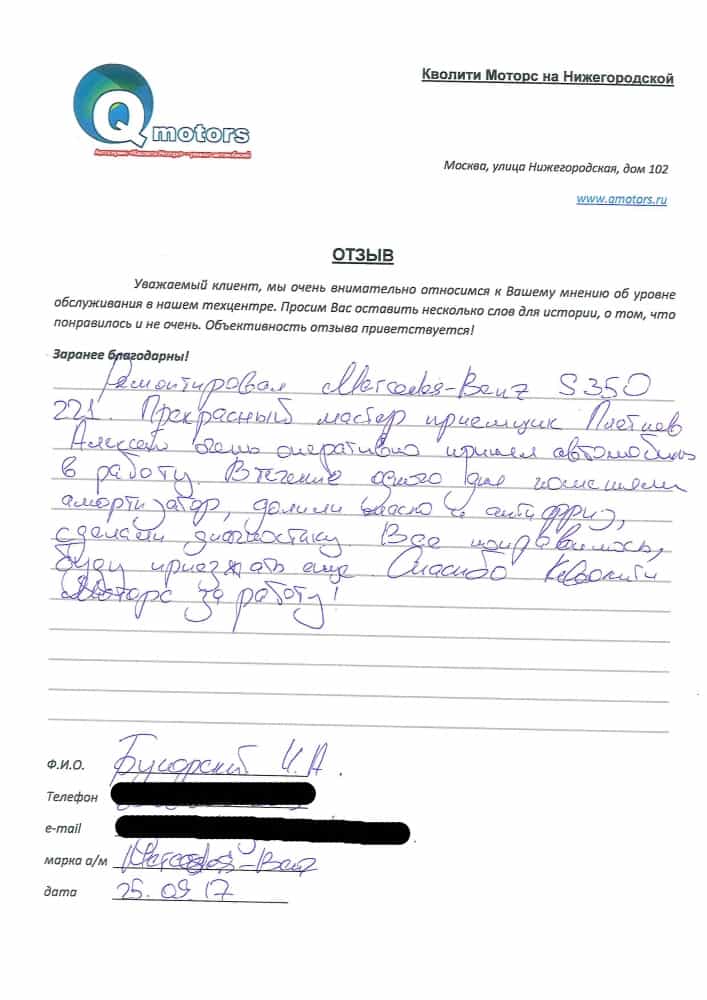 Кволити Моторс на Нижегородской
Q motors
Москва, улица Нижегородская, дом 102
www.qmotors.ru
ОТЗЫВ
Уважаемый клиент, мы очень внимательно относимся к Вашему мнению об уровне
обслуживания в нашем техцентре. Просим Вас оставить несколько слов для истории, о том, что
понравилось и не очень. Объективность отзыва приветствуется!
Заранее благодарны!
Ремонтировал Mercedes-Benz S350
221. Прекрасный мастер приемщик
Алексей очень оперативно принял автомобиль
в работу. В течение одного дня поменяли
амортизатор, долили масло и антифриз,
сделали диагностику. Все понравилось,
буду приезжать еще. Спасибо Кволити
Моторс за работу!
Ф.И.О. И. А.
Телефон
e-mail
марка а/м Mercedes-Benz
дата 25.09.17